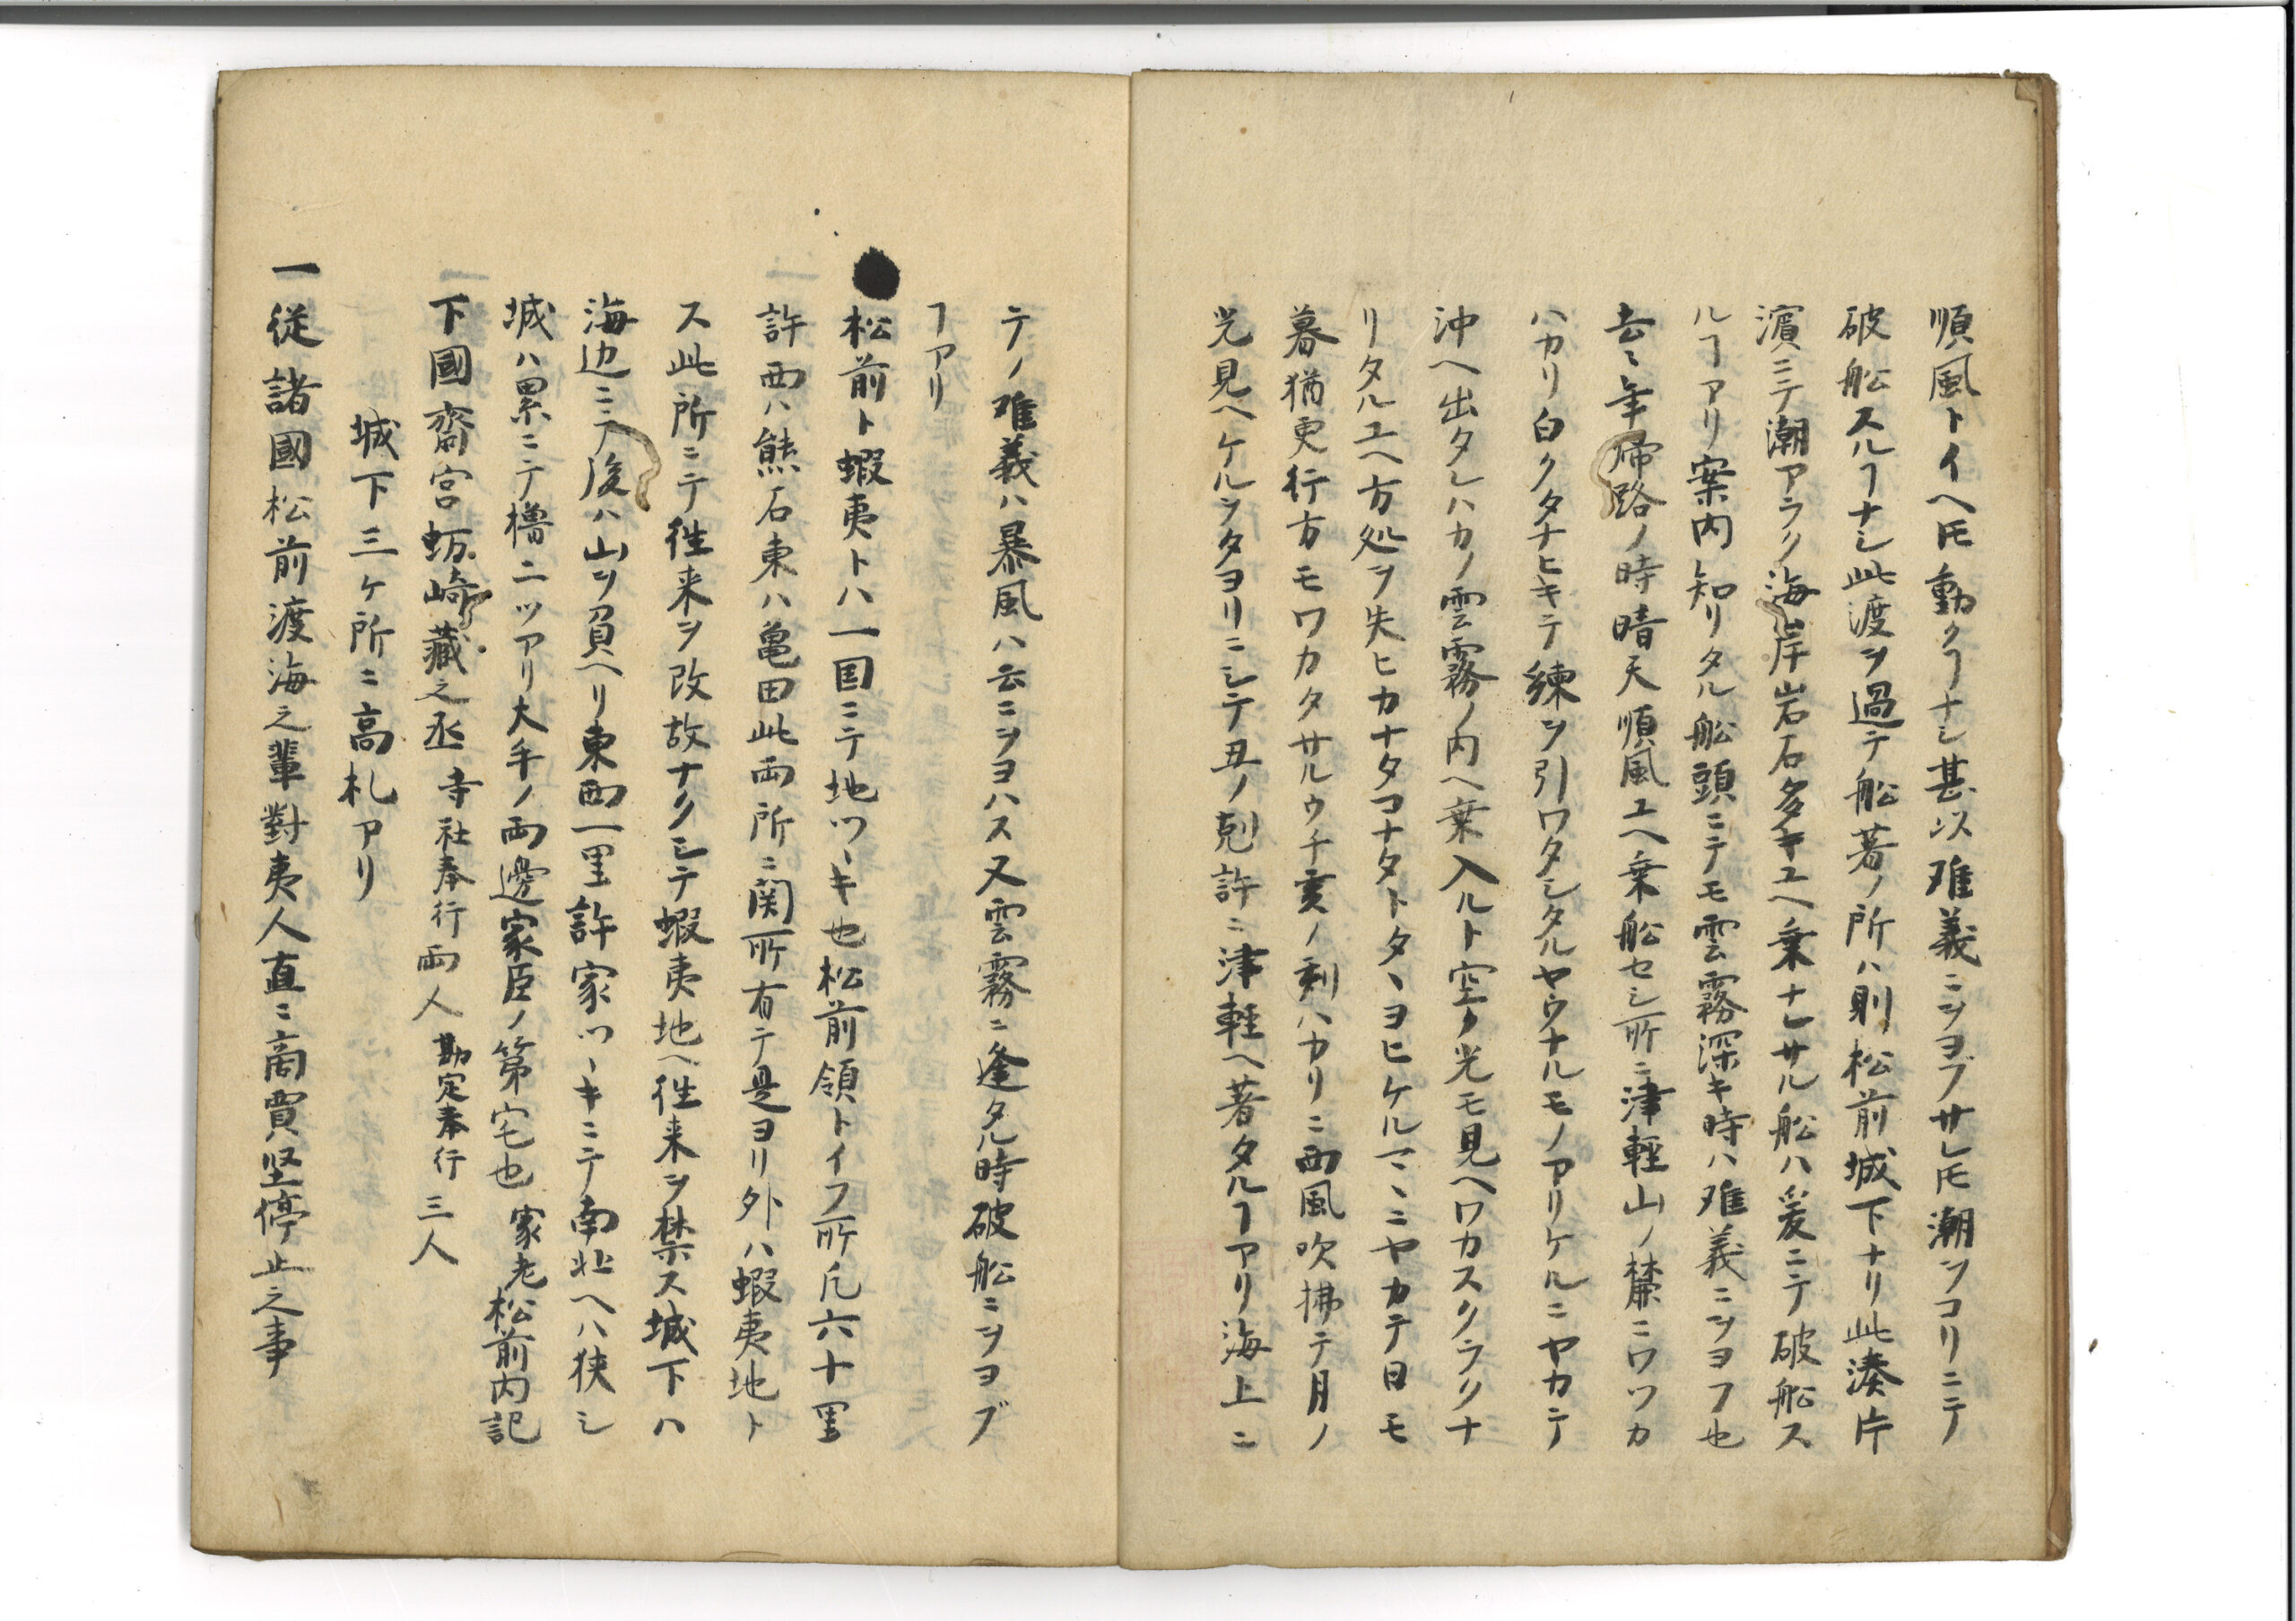 順風トイヘ𪜈動クヿナシ甚以难義ニヲヨブサレ𪜈潮ツコリニテ
破舩スルヿナシ此渡ヲ過テ舩著ノ所ハ則松前城下ナリ此湊片
濱ニテ潮アラク海岸岩石多キユヘ乗ナレサル舩ハ爰ニテ破舩ス
ルヿアリ案内知リタル舩頭ニテモ雲霧深キ時ハ难義ニヲヨフ也
去ミ年帰路ノ時晴天順風ユヘ乗舩セシ所ニ津軽山ノ麓ニワツカ
ハカリ白クタナヒキテ練ヲ引ワタシタルヤウナルモノアリケルニヤカテ
沖ヘ出タレハカノ雲霧ノ内ヘ乗入ルト空ノ光モ見ヘワカスクラクナ
リタルユヘ方処ヲ失ヒカナタコナタトタヽヨヒケルマヽニヤカテ日モ
暮猶更行方モワカタサルウチ亥ノ刻ハカリニ西風吹拂テ月ノ
光見ヘケルヲタヨリニシテ丑ノ剋許ニ津軽ヘ著タルヿアリ海上ニ
テノ难義ハ暴風ハ云ニヲヨハス又雲霧ニ逢タル時破舩ニヲヨブ
ヿアリ
松前ト蝦夷トハ一国ニテ地ツヽキ也松前領トイフ所凢六十里
許西ハ熊石東ハ亀田此両所ニ関所有テ是ヨリ外ハ蝦夷地ト
ス此所ニテ徃来ヲ改故ナクシテ蝦夷地ヘ徃来ヲ禁ス城下ハ
海边ニテ後ハ山ヲ負ヘリ東西一里許家ツヽキニテ南北ヘハ狭シ
城ハ累ニテ櫓二ツアリ大手ノ両邊家臣ノ第宅也 家老松前内記
下國齋宮蛎崎藏之丞 寺社奉行両人 勘定奉行三人
城下三ケ所ニ高札アリ
一従諸國松前渡海之輩對夷人直ニ商賣堅停止之事